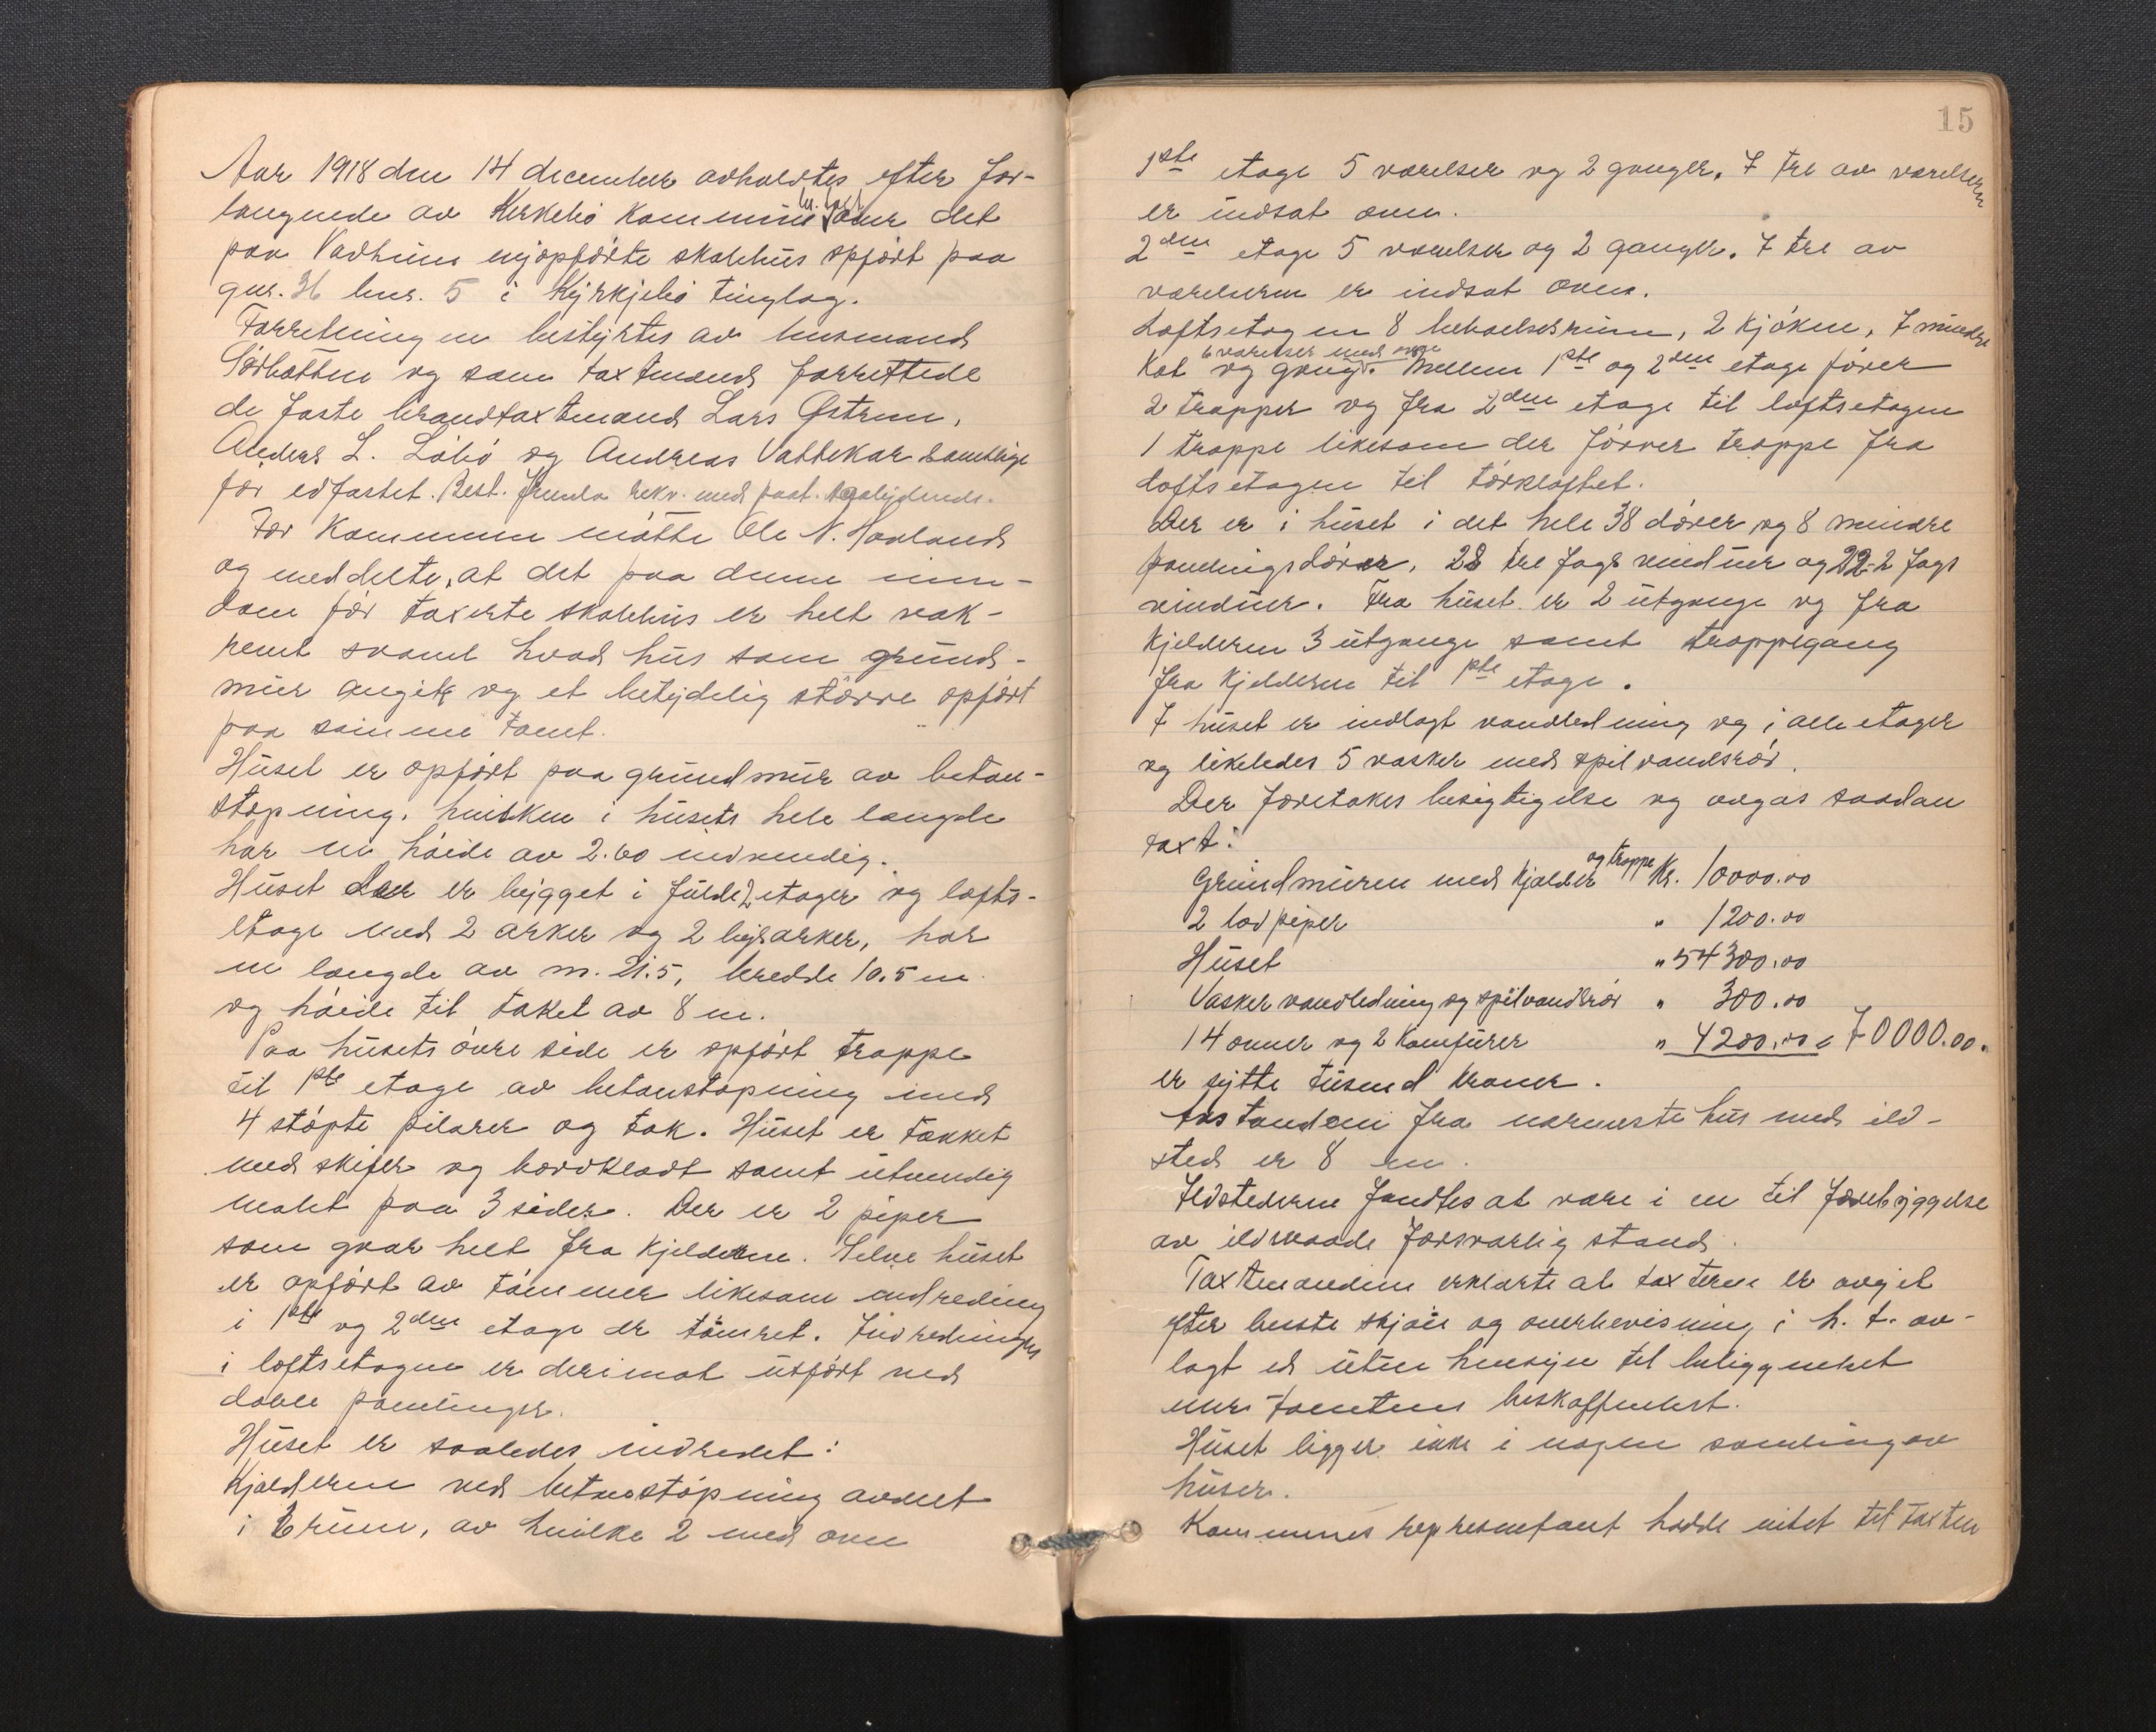 Aar 1918 den 14 december avholdtes efter for-
langende av Kirkebø kommune m. taxt over det
paa Vadheim nyopførte skolehus opført paa
gnr. 36 bnr. 5 i Kyrkjebø tinglag.
Forretningen bestyrtes av lensmand
Sørbotten og som taxtmænd forrettede
de faste brandtaxtmænd Lars Østrem,
Anders L. Løbø og Andreas Vattekar samtlige
før edfæstet. Best. fremla rekv. med paat. saalydende.
For kommunen møtte Ole N. Hovland
og meddelte, at det paa denne eien-
dom før taxerte skolehus er helt væk-
revet svamt hvad hus som grund-
mur angik og et betydelig større opført
paa samme tomt.
Huset er opført paa grundmur av beton-
støpning, hvilken i husets hele længde
har en høide av 2.60 indvendig.
Huset er bygget i fulde 2 etager og lofts-
etage med 2 arker og 2 byrarker, har
en længde av m. 21.5, bredde 10.5 m.
og høide til taket av 8 m.
Paa husets øvre side er opført trappe
til 1ste etage av betonstøpning med
4 støpte pilarer og tak. Huset er tækket
med skifer og bordklædt samt utvendig
malet paa 3 sider. Der er 2 piper
som gaar helt fra kjelderen. Selve huset
er opført av tømmer likesom indreding
i 1ste og 2den etage er tømret. Indredningen
i loftsetagen er derimot utført ved
doble panelinger.
Huset er saaledes indredet:
Kjelderen ved betonstøpning avdelt
i 6 rum, av hvilke 2 med ovn
15
1ste etage 5 værelser og 2 ganger. I tre av værelserne
er indsat ovn.
2den etage 5 værelser og 2 ganger. I tre av
værelserne er indsat ovn.
Loftsetagen 8 beboelsesrum, 2 kjøken, 7 mindre
6 værelser med ovne
Kot og gang. Mellem 1ste og 2den etage fører
2 trapper og fra 2den etage til loftsetagen
1 trappe likesom der fører trappe fra
loftsetagen til tørkeloftet.
Der er i huset i det hele 38 dører og 8 mindre
panelingsdører, 28 tre fags vinduer og 22 2 fags
vinduer. Fra huset er 2 utgange og fra
kjelderen 3 utgange samt trappegang
fra kjelderen til 1ste etage.
I huset er indlagt vandledning og i alle etager
og likeledes 5 vasker med spilvandsrør.
Der foretokes besigtigelse og avgas saadan
taxt:
Grundmuren med kjelder og trappe Kr. 10000.00
2 lod piper " 1200.00
Huset " 54300.00
Vasker vandledning og spilvandsrør " 300.00
14 ovner og 2 komfurer " 4200.00 = 70000.00.
er sytti tusend kroner.
Avstanden fra nærmeste hus med ild-
sted er 8 m.
Ildstederne fandtes at være i en til forebyggelse
av ildsvaade forsvarlig stand.
Taxtmændene erklærte at taxterne er avgit
efter beste skjøn og overbevisning i h. t. av-
lagt ed uten hensyn til beliggenhet
eller tomtens beskaffenhet.
Huset ligger ikke i nogen samling av
huser.
Kommunes representant hadde intet til taxten